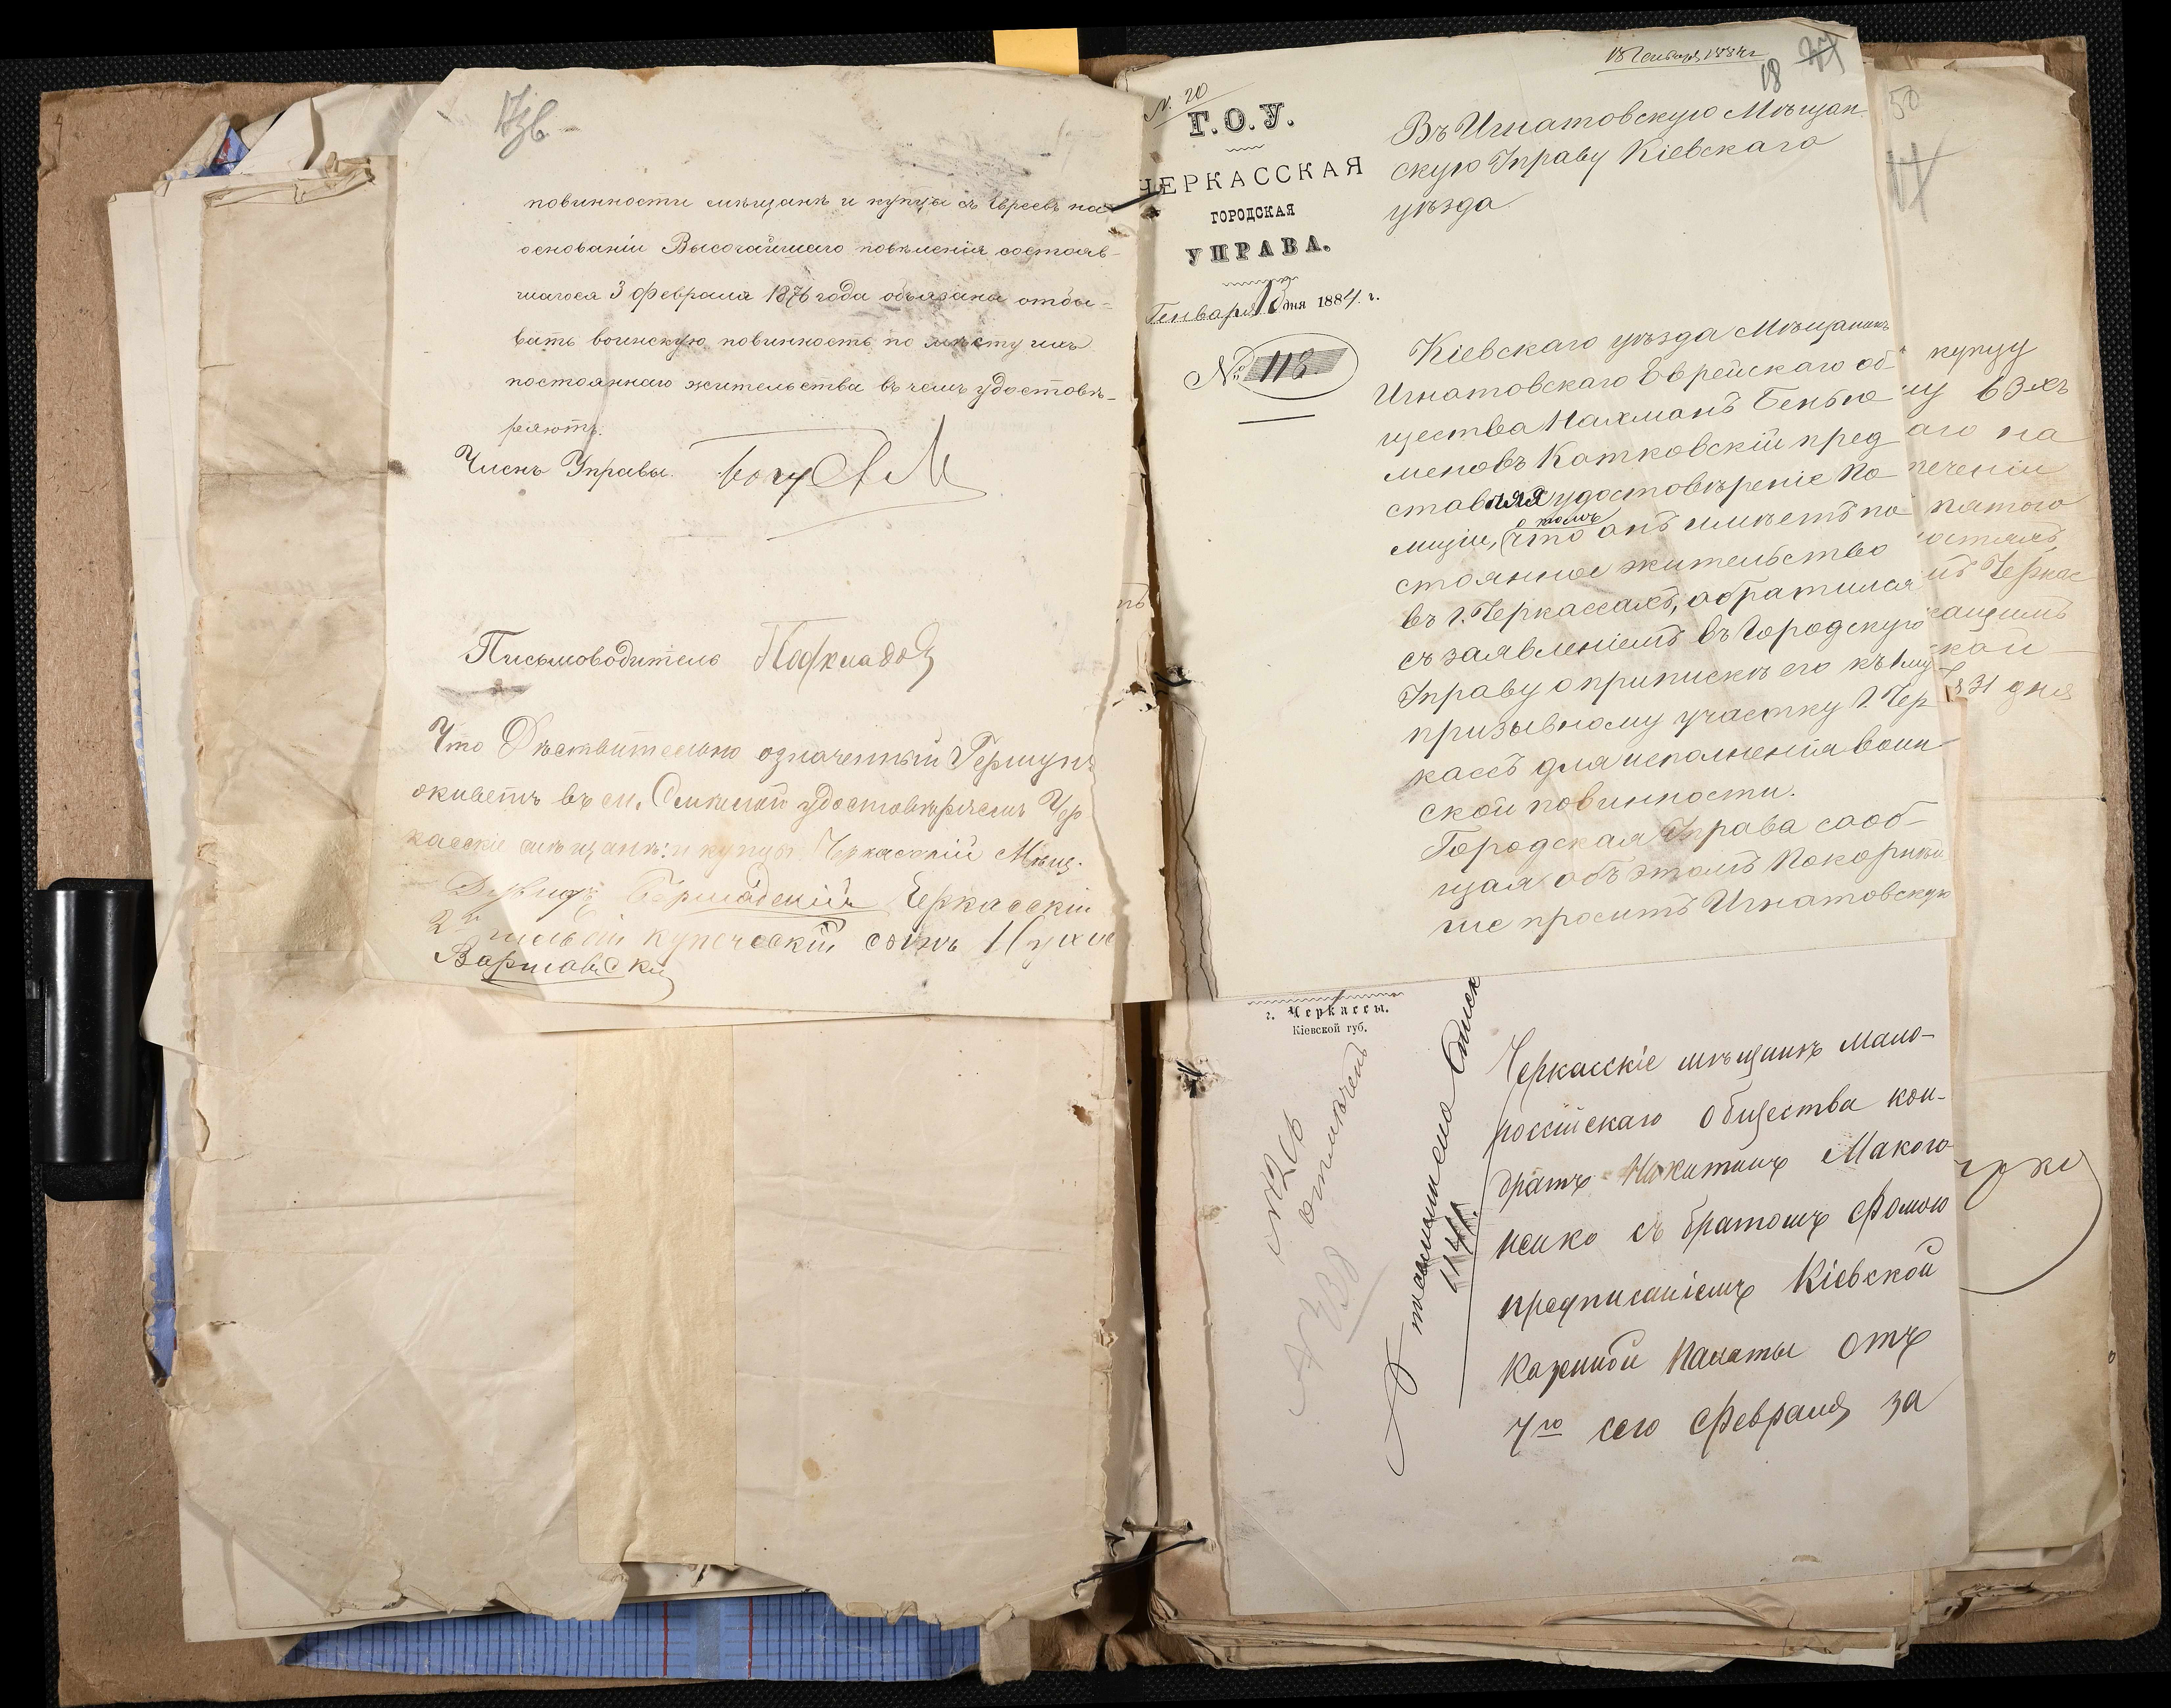 17зв.
повинности мѣщанъ и купцы съ Евреевъ на
основаніи Высочайшаго повѣленія состояв-
шагося 3 Февраля 1876 года обязаны отбы-
вать воинскую повинность по мѣсту ихъ
постояннаго жительства въ чемъ удостовѣ-
ряютъ.
Членъ Управы.
Письмоводитель
Что Дѣствительно означенный Гершунъ
живетъ въ м. удостовѣряемъ Чер
касскіе мѣщанъ: и купцы Черкасскій Мѣщ.
Черкасскій
2й гильдіи купеческій сынъ
Варшавскій
18 Генваря 1884 г
18
N. 20
Г.О.У.
ЧЕРКАССКАЯ
ГОРОДСКАЯ
УПРАВА.
Генваря дня 1884. г.
№ 118
Въ Игнатовскую Мѣщан
скую Управу Кіевскаго
уѣзда
Кіевскаго уѣзда Мѣщанинъ
Игнатовскаго Еврейскаго об
щества Нахманъ Бенью
меновъ Катковскій пред
ставляя удостовѣреніе По
лиціи, о томъ что онъ имѣетъ по
стоянное жительство
въ г. Черкассахъ, обратился
съ заявленіемъ въ Городскую
Управу о припискѣ его къ 1му
призывному участку г. Чер
кассъ для исполненія воин
ской повинности.
Городская Управа сооб-
щая объ этомъ Покорнѣй
ше проситъ Игнатовскую
50
17
купцу
аго на
печеніи
пятого
Черкас
31 дня
г. Черкассы.
Кіевской губ.
отмѣченъ
1141.
Черкасскіе мѣщанинъ мало-
россійскаго общества кон-
дратъ Никитинъ Макого
ненко съ братомъ Фомою
предписаніемъ Кіевской
Казенной Палаты отъ
7го сего Февраля за